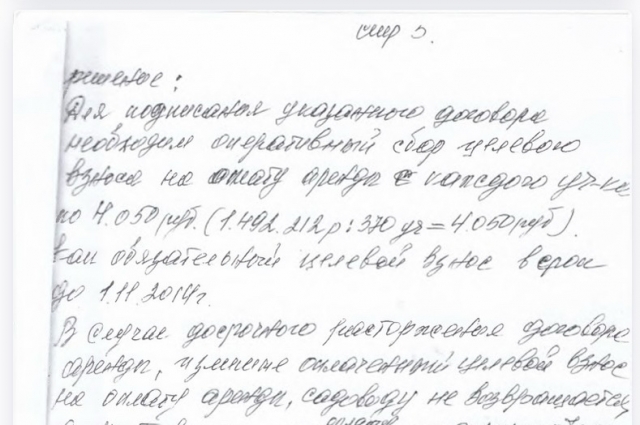 стр 5.
решение:
Для подписания указанного договора
необходим оперативный сбор целевого
взноса на оплату аренды с каждого уч-ка
по 4.050 руб. (1.492.212 р : 370 уч = 4.050 руб).
как обязательный целевой взнос в срок
до 1.11.2014г.
В случае досрочного расторжения договора
аренды, излишне оплаченный целевой взнос
на оплату аренды, садоводу не возвращается,